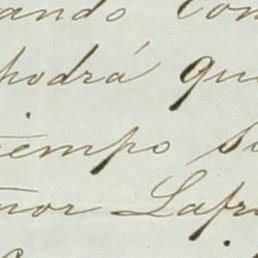 ando con
podrá que
tiempo s
nor Lafr